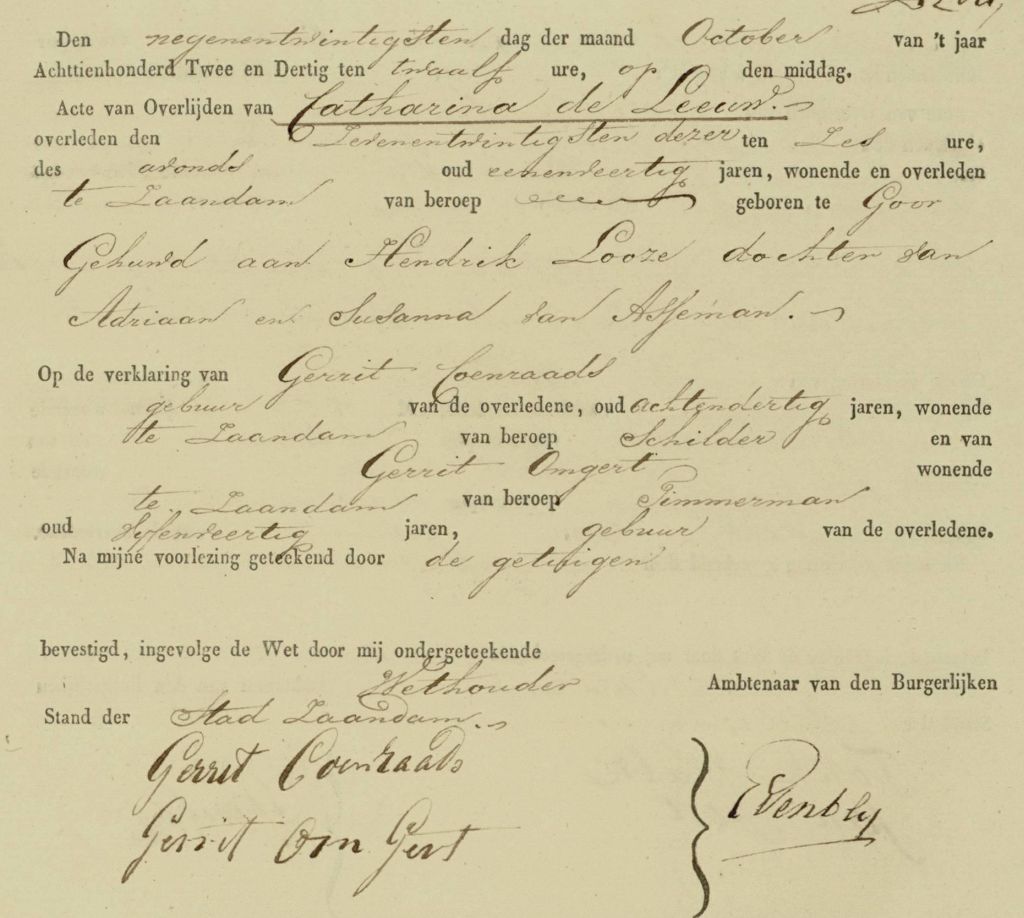 Den negenentwintigsten dag der maand October van 't jaar
Achttienhonderd Twee en Dertig ten twaalf ure, op den middag.
Acte van Overlijden van Catharina de Leeuw.
overleden den Zevenentwintigsten dezer ten Zes ure,
des avonds oud eenenveertig jaren, wonende en overleden
te Zaandam van beroep geboren te Goor
Gehuwd aan Hendrik Looze dochter van
Adriaan en Susanna van Asseman.
Op de verklaring van Gerrit Coenraads
gebuur van de overledene, oud achtendertig jaren, wonende
te Zaandam van beroep Schilder en van
Gerrit Omgert wonende
te Zaandam van beroep Timmerman
oud vyfenveertig jaren, gebuur van de overledene.
Na mijne voorlezing geteekend door de getuigen
bevestigd, ingevolge de Wet door mij ondergeteekende
Wethouder Ambtenaar van den Burgerlijken
Stand der Stad Zaandam.
Gerrit Coenraads
Gerrit Om Gert